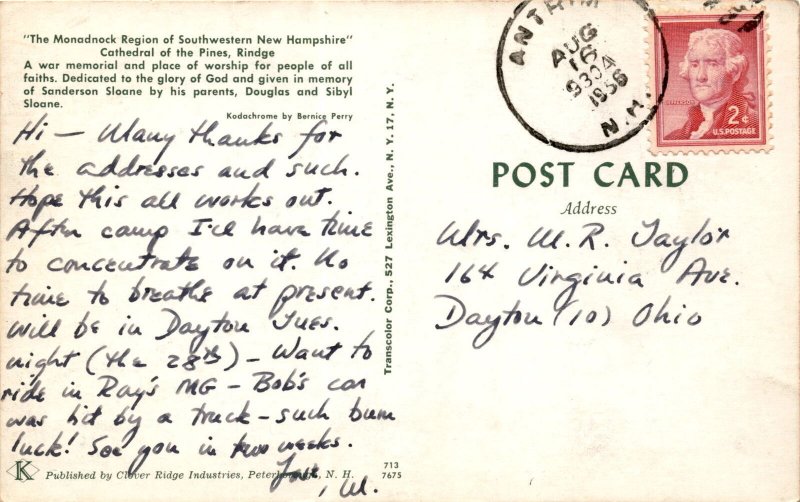 "The Monadnock Region of Southwestern New Hampshire"
Cathedral of the Pines, Rindge
A war memorial and place of worship for people of all
faiths. Dedicated to the glory of God and given in memory
of Sanderson Sloane by his parents, Douglas and Sibyl
Sloane.
Kodachrome by Bernice Perry
Hi – Many thanks for
the addresses and such.
Hope this all works out.
After camp I'll have time
to concentrate on it. No
time to breathe at present.
Will be in Dayton Tues.
night (the 28th) – Want to
ride in Ray's MG – Bob's car
was hit by a truck – such bum
luck! See you in two weeks.
, W.
K Published by Clover Ridge Industries, Peterborough, N. H.
713
7675
Transcolor Corp., 527 Lexington Ave., N. Y. 17, N. Y.
ANTRIM
AUG
16
930A
1956
N.H.
JEFFERSON
2¢
U.S. POSTAGE
POST CARD
Address
Mrs. W. R. Taylor
164 Virginia Ave.
Dayton (10) Ohio